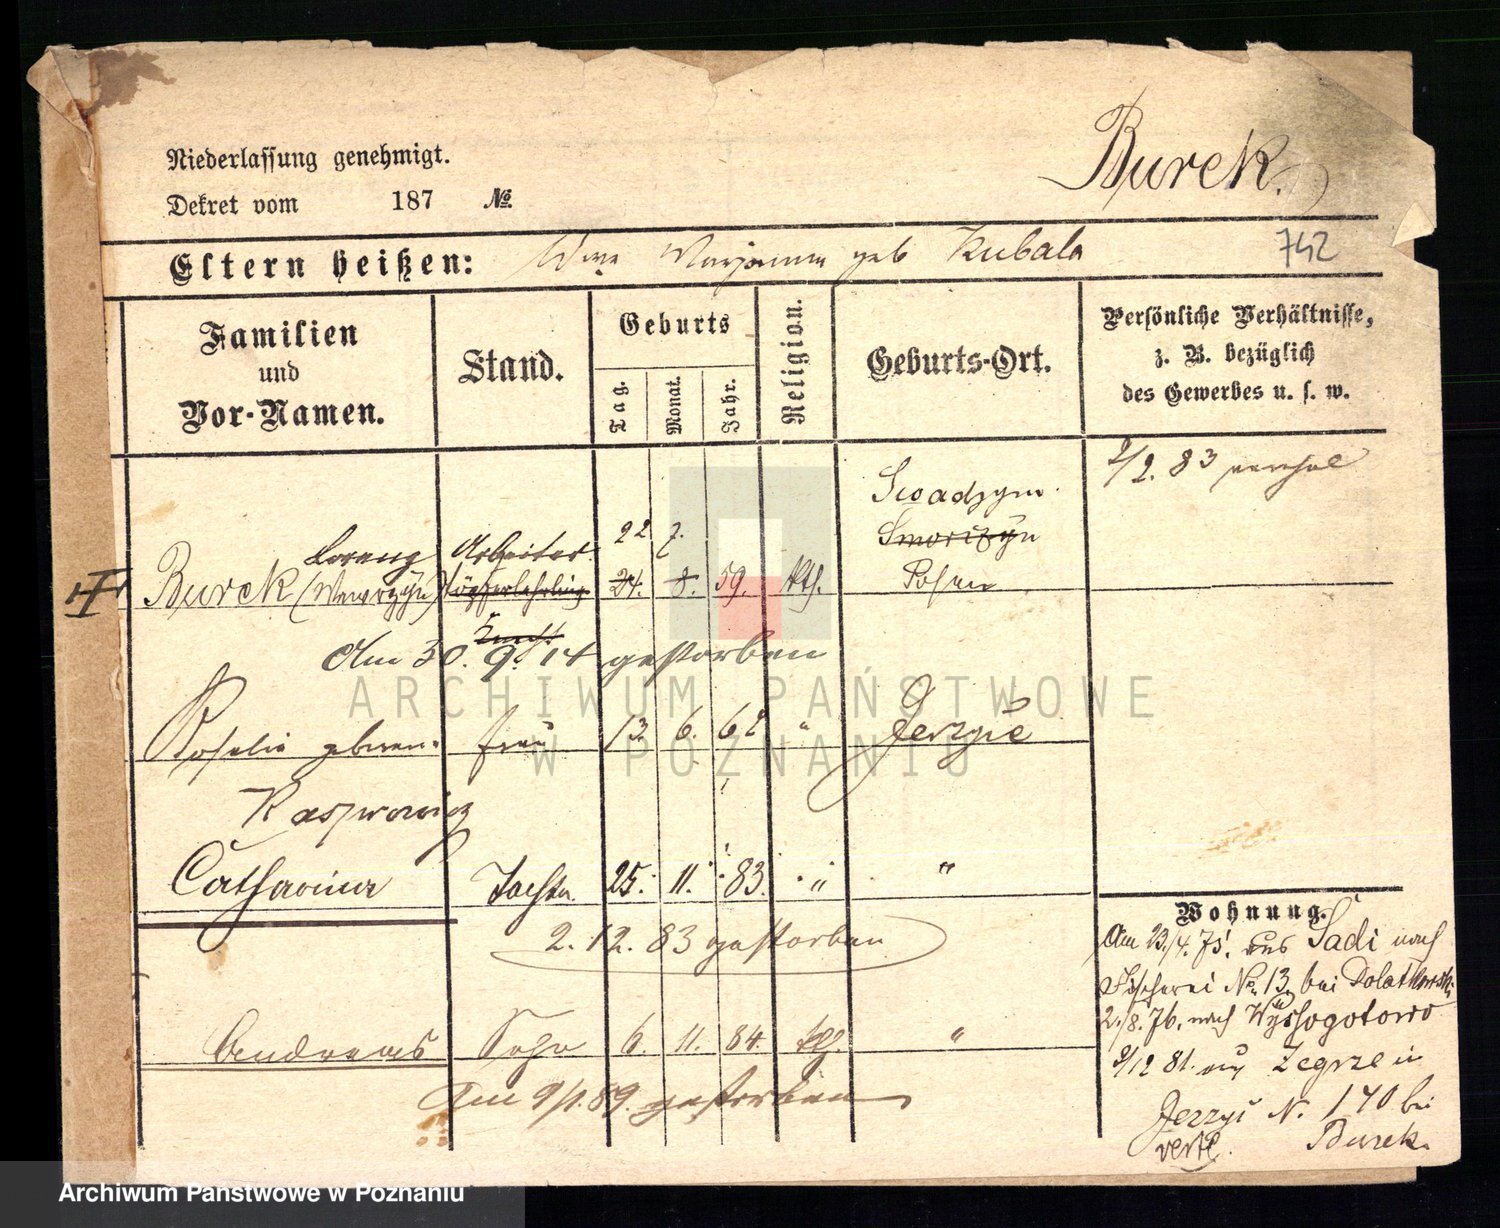 Niederlassung genehmigt.
Burek.
Dekret vom 187 №.
Eltern heißen: Wwe Marjanna geb Kubala 742
Familien und Vor-Namen.
Stand.
Geburts
Tag. Monat. Jahr.
Religion.
Geburts-Ort.
Persönliche Verhältnisse, z. B. bezüglich des Gewerbes u. s. w.
2/2. 83
Swadzym
Lorenz Arbeiter 22 7. Smorczyn
Burek (Wawrzyn) Töpferlehrling 24. 8. 59. kth. Posen
Knecht
Am 30. 9. 14 gestorben
Rosalie geboren. Frau 13. 6. 62 " Jerzyce
Kasprowicz
Catharina Tochter 25. 11. 83. " "
2. 12. 83 gestorben
Andreas Sohn 6. 11. 84. kth. "
Am 9/1. 89. gestorben
Wohnung.
Am 23./4. 75. aus Sadi nach
Fischerei No. 13 bei
2./8. 76. nach Wyssogotowo
2/12 81. aus Zegrze in
Jerzyi N. 140 bei
verte. Burek.
ARCHIWUM PAŃSTWOWE
W POZNANIU
Archiwum Państwowe w Poznaniu